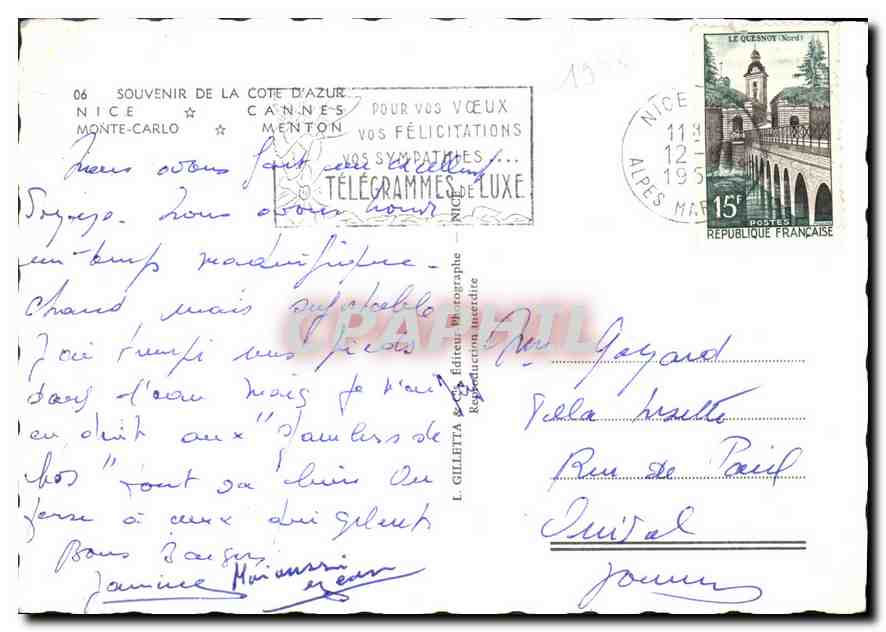 06 SOUVENIR DE LA COTE D'AZUR
NICE ☆ CANNES
MONTE-CARLO ☆ MENTON
POUR VOS VŒUX
VOS FÉLICITATIONS
VOS SYMPATHIES....
TÉLÉGRAMMES DE LUXE
1958
NICE
11
12
195
ALPES MAR
LE QUESNOY (Nord)
15F
POSTES
RÉPUBLIQUE FRANÇAISE
Nous avons fait un excellent
Voyage. Nous avons
un temps magnifique.
chaud mais supportable
J'ai trempé mes pieds
dans l'eau mais je n'ai
eu droit aux
bas" tout va bien On
pense à ceux qui
Bons Baisers
Janine
L. GILLETTA & Cie Éditeur Photographe — NICE
Reproduction interdite
CPAPHIL
Goyard
Villa Lisette
Rue de Paul